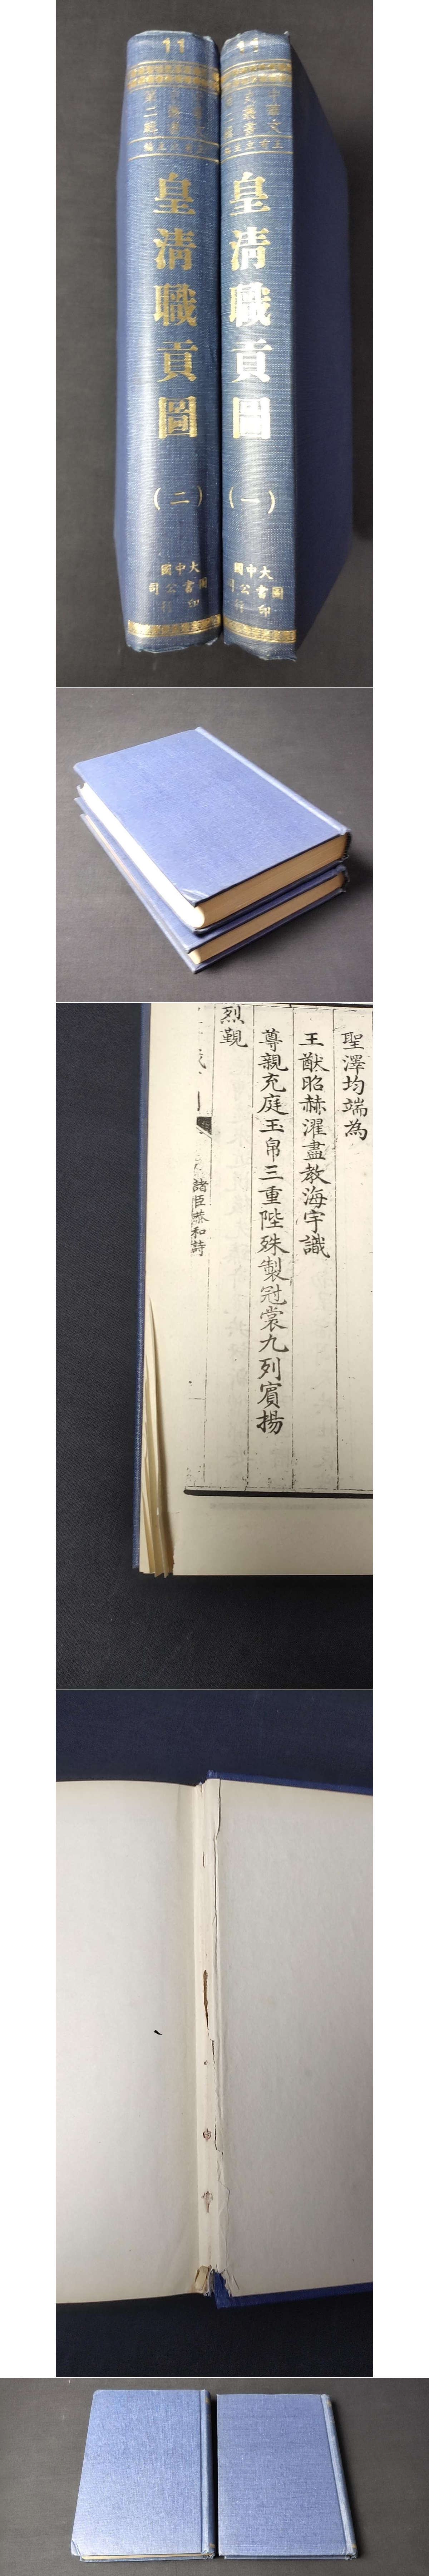 11
皇清職貢圖
(二)
大中國
圖書公司
印行
11
皇清職貢圖
(一)
大中國
圖書公司
印行
聖澤均端為
王猷昭赫濯盡教海宇識
尊親充庭玉帛三重陛殊製冠裳九列賓揚
烈覲
諸臣恭和詩